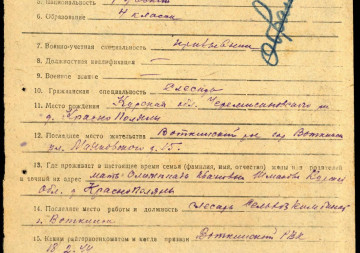 5. Национальность русский
6. Образование 4 класса
7. Военно-учетная специальность
8. Должностная квалификация —
9. Военное звание —
10. Гражданская специальность Слесарь
11. Место рождения Курская обл. Черемисиновского р-н
д. Красно Поляны
12. Последнее место жительства Воткинский р-н гор Воткинск
ул. д. 15.
13. Где проживает в настоящее время семья (фамилия, имя, отчество) жены или родителей
и точный их адрес мать Олимпиада Ивановна Курск
обл. д Краснополяны
14. Последнее место работы и должность слесарь
г. Воткинск
15. Каким райгорвоенкоматом и когда призван Воткинский РВК
18.2.44